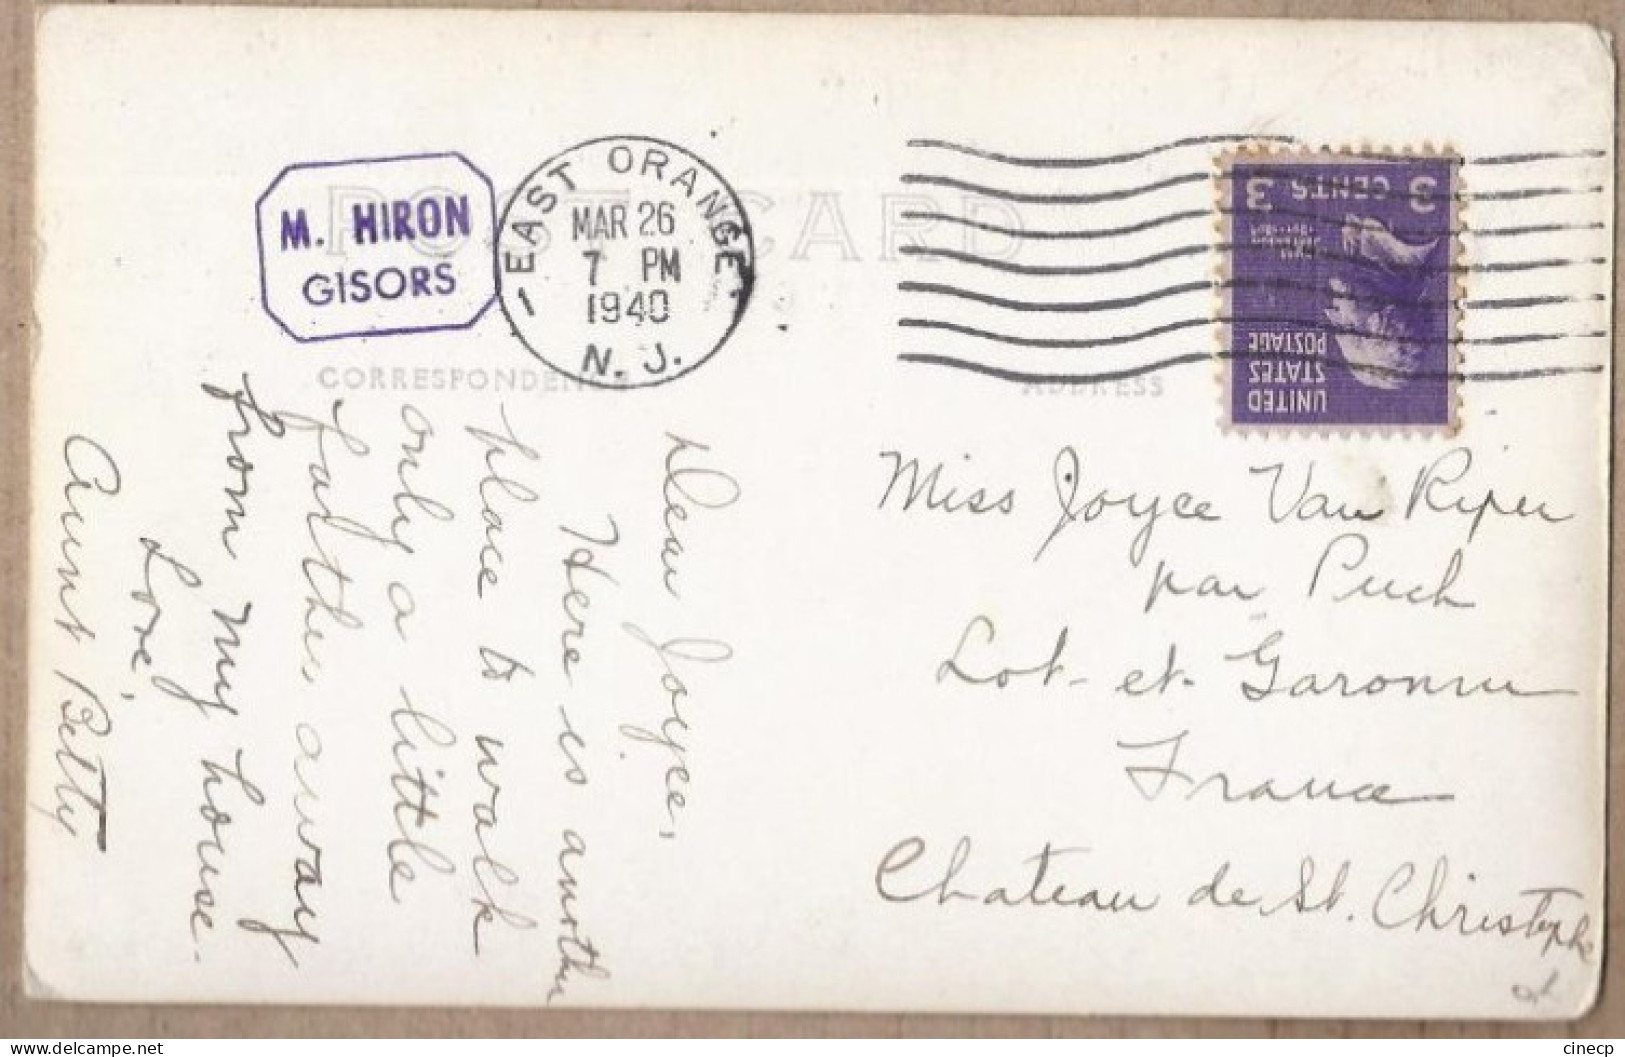 POST CARD
M. HIRON
GISORS
EAST ORANGE
MAR 26
7 PM
1940
N. J.
3 CENTS 3
UNITED
STATES
POSTAGE
CORRESPONDENCE
ADDRESS
Dear Joyce,
Here is another
place to walk
only a little
farther away
from my house.
Love,
Aunt Betty
Miss Joyce Van Riper
par Puch
Lot-et-Garonne
France
Chateau de St. Christophe
cinecp